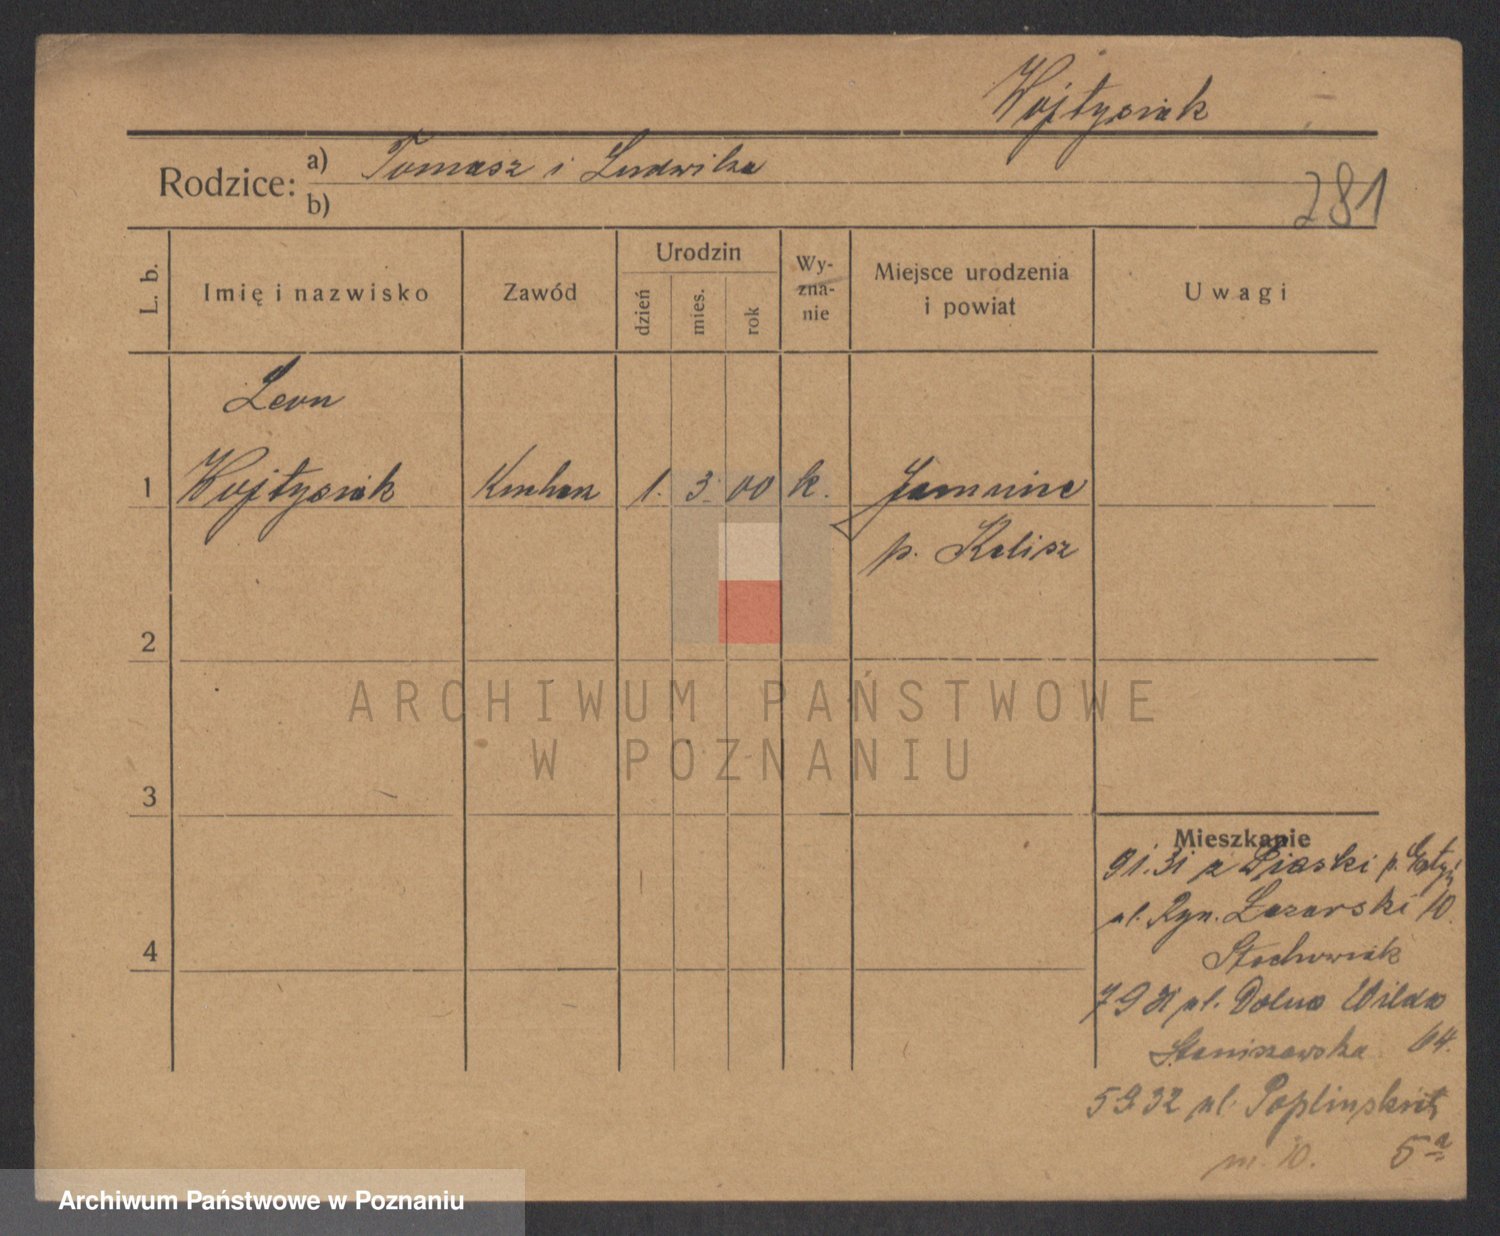 Wojtysiak
Rodzice: a) Tomasz i Ludwika
b)
281
L. b.
Imię i nazwisko
Zawód
Urodzin
dzień
mies.
rok
Wy-
zna-
nie
Miejsce urodzenia
i powiat
Uwagi
Leon
1 Wojtysiak Kucharz 1. 3. 00 k.
p. Kalisz
2
3
4
Mieszkanie
9 1. 31 z Piaski p.
ul. Ryn. Łazarski 10.
Stachowiak
7 9 31 ul. Dolna Wilda
Staniszewska 64.
5 9 32 ul. Poplińskich
5a
m. 10.
ARCHIWUM PAŃSTWOWE
W POZNANIU
Archiwum Państwowe w Poznaniu